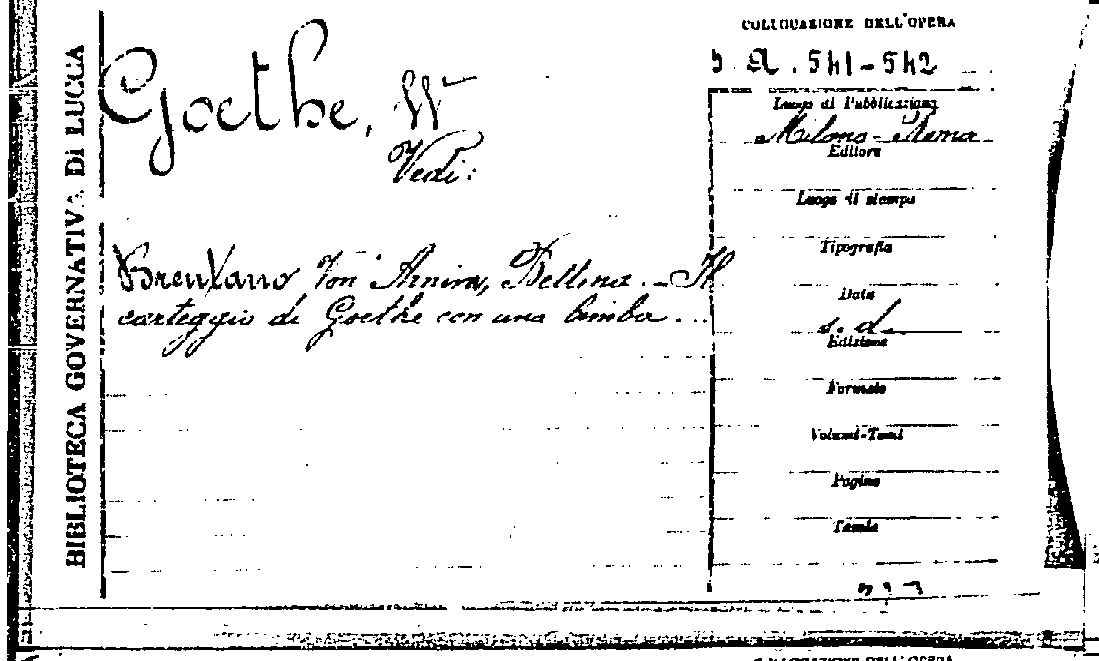 BIBLIOTECA GOVERNATIVA DI LUCCA
Goethe, W
Vedi:
Brentano Von Arnim, Bettina. - Il
carteggio di Goethe con una bimba ...
COLLOCAZIONE DELL'OPERA
A. 541-542
Luogo di Pubblicazione
Milano-Roma
Editore
Luogo di stampa
Tipografia
Data
s. d.
Edizione
Formato
Volumi-Tomi
Pagine
Tavole